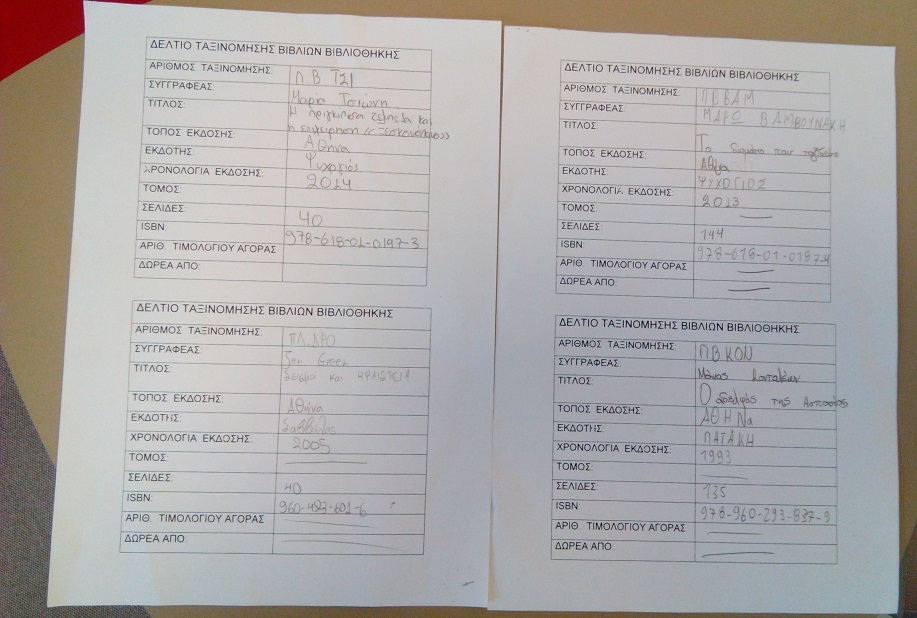 ΔΕΛΤΙΟ ΤΑΞΙΝΟΜΗΣΗΣ ΒΙΒΛΙΩΝ ΒΙΒΛΙΟΘΗΚΗΣ
ΑΡΙΘΜΟΣ ΤΑΞΙΝΟΜΗΣΗΣ: Π Β ΤΣΙ
ΣΥΓΓΡΑΦΕΑΣ: Μαρία Τσιώνη
ΤΙΤΛΟΣ: Η πριγκίπισσα
και
η επιχείρηση
ΤΟΠΟΣ ΕΚΔΟΣΗΣ: Αθήνα
ΕΚΔΟΤΗΣ: Ψυχογιός
ΧΡΟΝΟΛΟΓΙΑ ΕΚΔΟΣΗΣ: 2014
ΤΟΜΟΣ:
ΣΕΛΙΔΕΣ: 40
ISBN: 978-618-01-0197-3
ΑΡΙΘ. ΤΙΜΟΛΟΓΙΟΥ ΑΓΟΡΑΣ
ΔΩΡΕΑ ΑΠΟ:
ΔΕΛΤΙΟ ΤΑΞΙΝΟΜΗΣΗΣ ΒΙΒΛΙΩΝ ΒΙΒΛΙΟΘΗΚΗΣ
ΑΡΙΘΜΟΣ ΤΑΞΙΝΟΜΗΣΗΣ:
ΣΥΓΓΡΑΦΕΑΣ: Jen Green
ΤΙΤΛΟΣ: και ΗΦΑΙΣΤΕΙΑ
ΤΟΠΟΣ ΕΚΔΟΣΗΣ: Αθήνα
ΕΚΔΟΤΗΣ: Σαββάλας
ΧΡΟΝΟΛΟΓΙΑ ΕΚΔΟΣΗΣ: 2005
ΤΟΜΟΣ:
ΣΕΛΙΔΕΣ: 40
ISBN: 960-423-601-6
ΑΡΙΘ. ΤΙΜΟΛΟΓΙΟΥ ΑΓΟΡΑΣ
ΔΩΡΕΑ ΑΠΟ:
ΔΕΛΤΙΟ ΤΑΞΙΝΟΜΗΣΗΣ ΒΙΒΛΙΩΝ ΒΙΒΛΙΟΘΗΚΗΣ
ΑΡΙΘΜΟΣ ΤΑΞΙΝΟΜΗΣΗΣ: ΠΒΒΑΜ
ΣΥΓΓΡΑΦΕΑΣ: ΜΑΡΩ ΒΑΜΒΟΥΝΑΚΗ
ΤΙΤΛΟΣ:
Το των
ΤΟΠΟΣ ΕΚΔΟΣΗΣ: Αθήνα
ΕΚΔΟΤΗΣ: ΨΥΧΟΓΙΟΣ
ΧΡΟΝΟΛΟΓΙΑ ΕΚΔΟΣΗΣ: 2013
ΤΟΜΟΣ:
ΣΕΛΙΔΕΣ: 144
ISBN: 978-618-01-0187-4
ΑΡΙΘ. ΤΙΜΟΛΟΓΙΟΥ ΑΓΟΡΑΣ
ΔΩΡΕΑ ΑΠΟ:
ΔΕΛΤΙΟ ΤΑΞΙΝΟΜΗΣΗΣ ΒΙΒΛΙΩΝ ΒΙΒΛΙΟΘΗΚΗΣ
ΑΡΙΘΜΟΣ ΤΑΞΙΝΟΜΗΣΗΣ: ΠΒΚΟΝ
ΣΥΓΓΡΑΦΕΑΣ: Μάνος Κονταλέων
ΤΙΤΛΟΣ: Ο αδελφός της Ασπασίας
ΤΟΠΟΣ ΕΚΔΟΣΗΣ: ΑΘΗΝα
ΕΚΔΟΤΗΣ: ΠΑΤΑΚΗ
ΧΡΟΝΟΛΟΓΙΑ ΕΚΔΟΣΗΣ: 1993
ΤΟΜΟΣ:
ΣΕΛΙΔΕΣ: 135
ISBN: 978-960-293-837-9
ΑΡΙΘ. ΤΙΜΟΛΟΓΙΟΥ ΑΓΟΡΑΣ
ΔΩΡΕΑ ΑΠΟ: